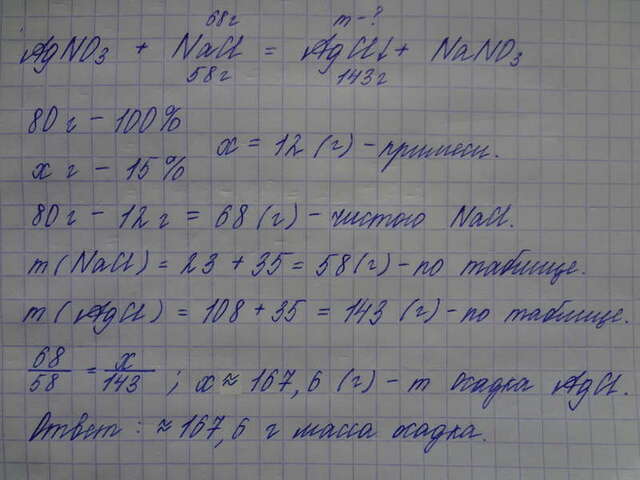 68г m-?
AgNO3 + NaCl = AgCl↓ + NaNO3
58г 143г
80г - 100%
x г - 15%
x = 12 (г) - примеси.
80г - 12г = 68(г) - чистого NaCl.
m(NaCl) = 23 + 35 = 58(г) - по таблице.
m(AgCl) = 108 + 35 = 143 (г) - по таблице.
68/58 = x/143 ; x ≈ 167,6 (г) - m осадка AgCl.
Ответ: ≈ 167,6 г масса осадка.